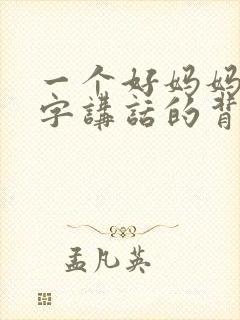 一个好妈妈
字講話的背
孟凡英